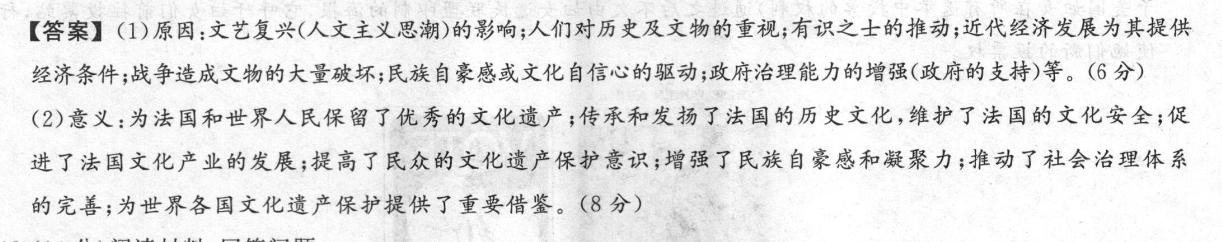 【答案】(1)原因:文艺复兴(人文主义思潮)的影响;人们对历史及文物的重视;有识之士的推动;近代经济发展为其提供
经济条件;战争造成文物的大量破坏;民族自豪感或文化自信心的驱动;政府治理能力的增强(政府的支持)等。(6分)
(2)意义:为法国和世界人民保留了优秀的文化遗产;传承和发扬了法国的历史文化,维护了法国的文化安全;促
进了法国文化产业的发展;提高了民众的文化遗产保护意识;增强了民族自豪感和凝聚力;推动了社会治理体系
的完善;为世界各国文化遗产保护提供了重要借鉴。(8分)